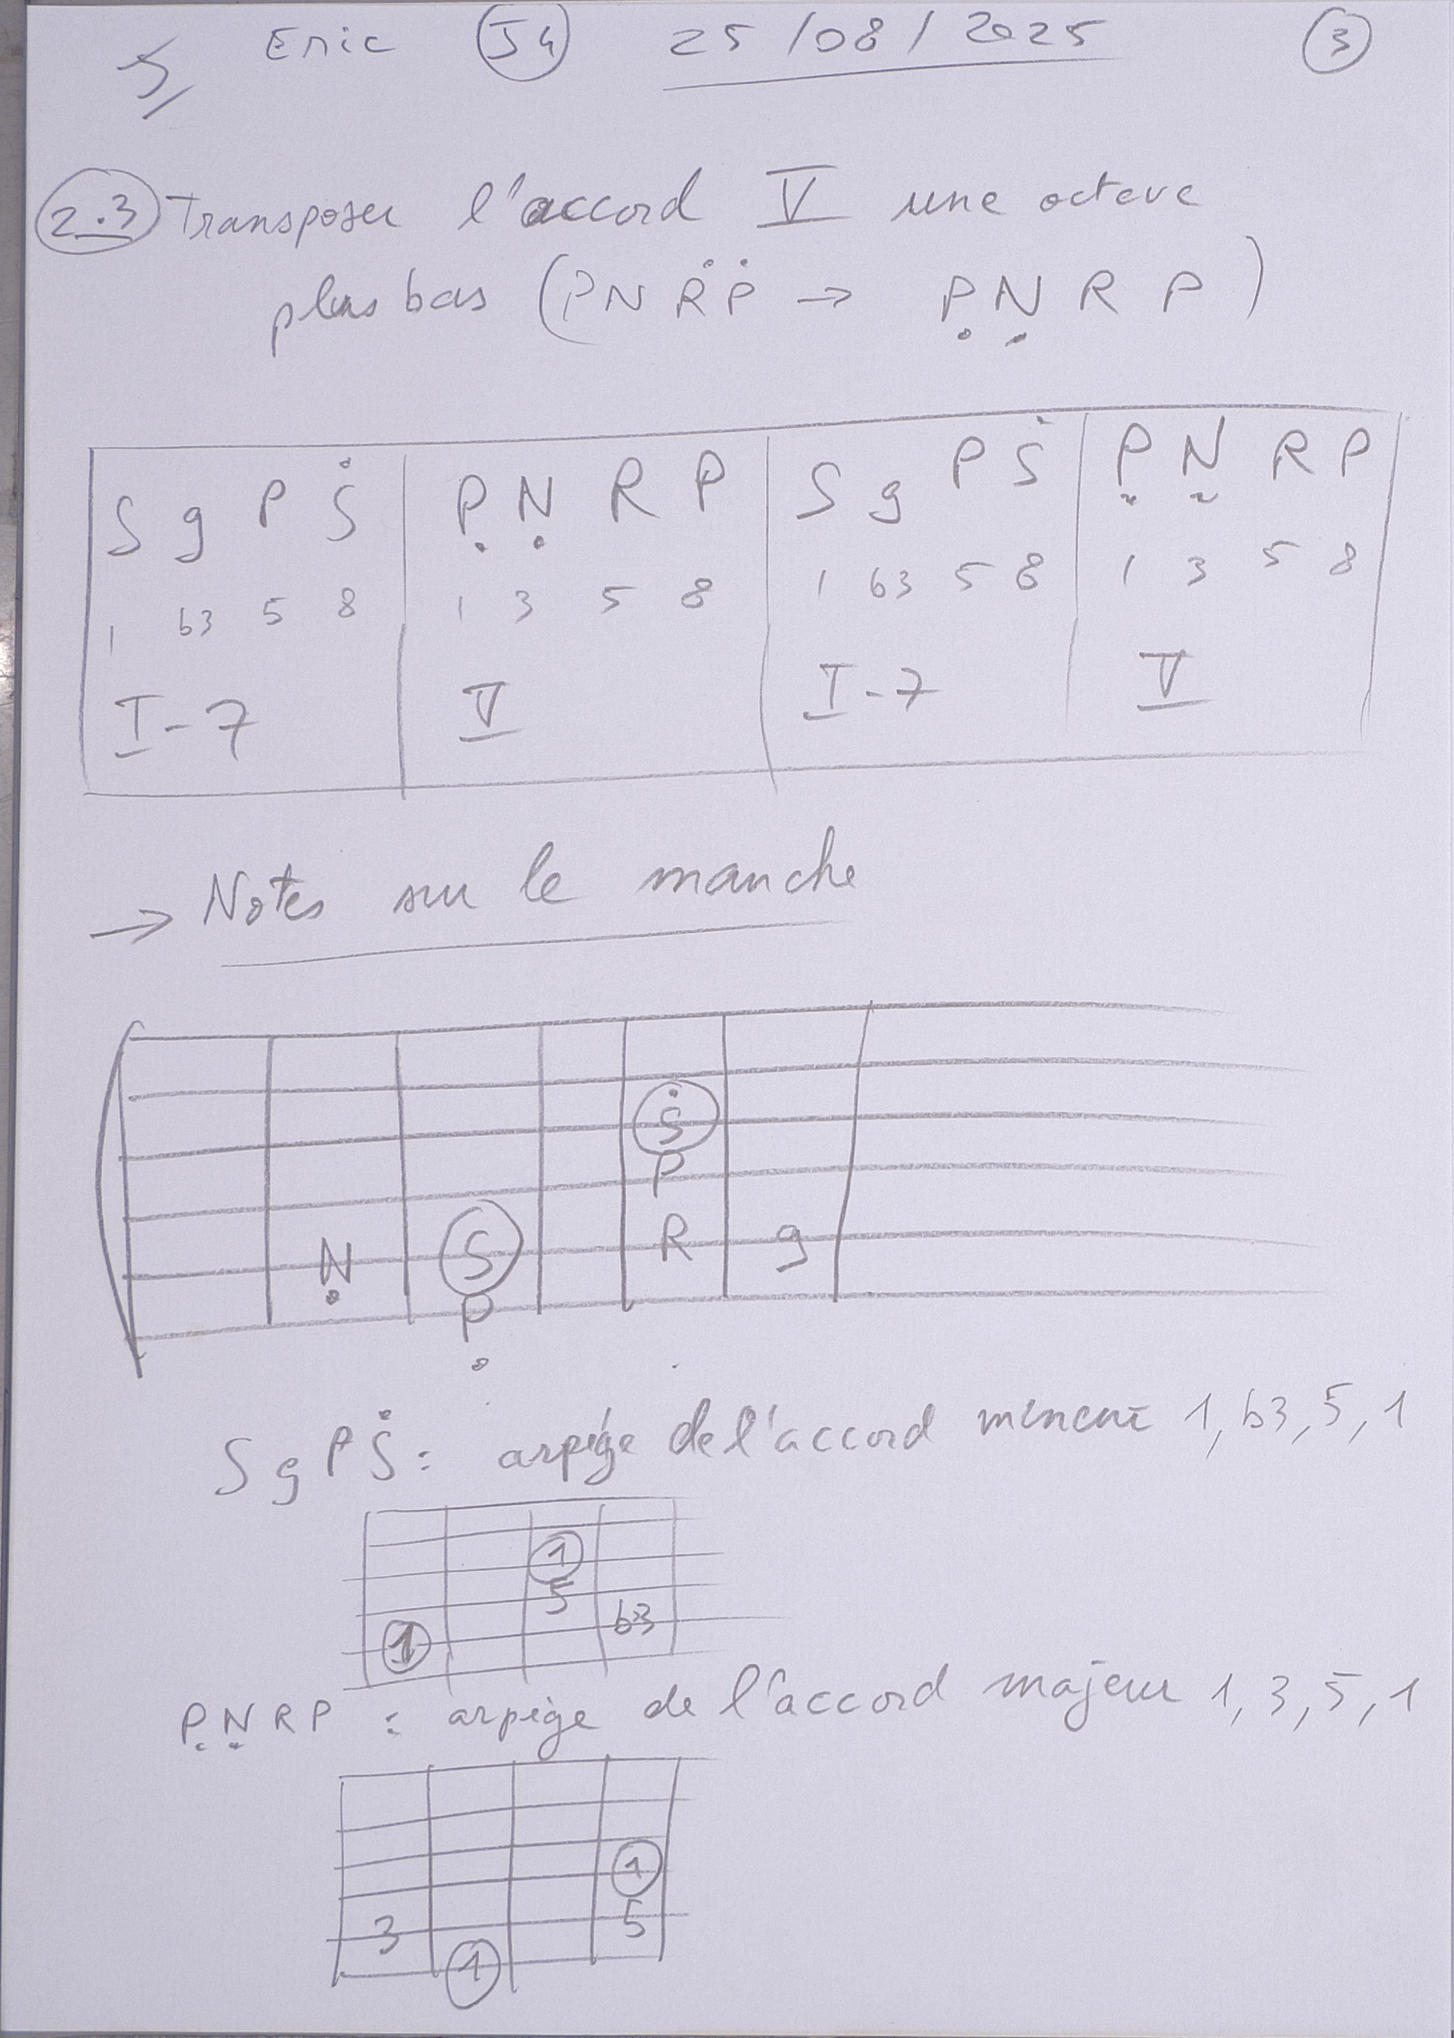 5/ Eric J4 25/08/2025 3
2.3 Transposer l'accord V une octave
plus bas (P N Ṙ Ṗ → P̣ Ṇ R P)
S g P Ṡ | P̣ Ṇ R P | S g P Ṡ | P̣ Ṇ R P
1 b3 5 8 | 1 3 5 8 | 1 b3 5 8 | 1 3 5 8
I-7 | V | I-7 | V
→ Notes sur le manche
Ṡ
P
Ṇ S R g
P̣
S g P Ṡ : arpége de l'accord mineur 1, b3, 5, 1
1
5
1 b3
P̣ Ṇ R P : arpège de l'accord majeur 1, 3, 5, 1
1
3 5
1